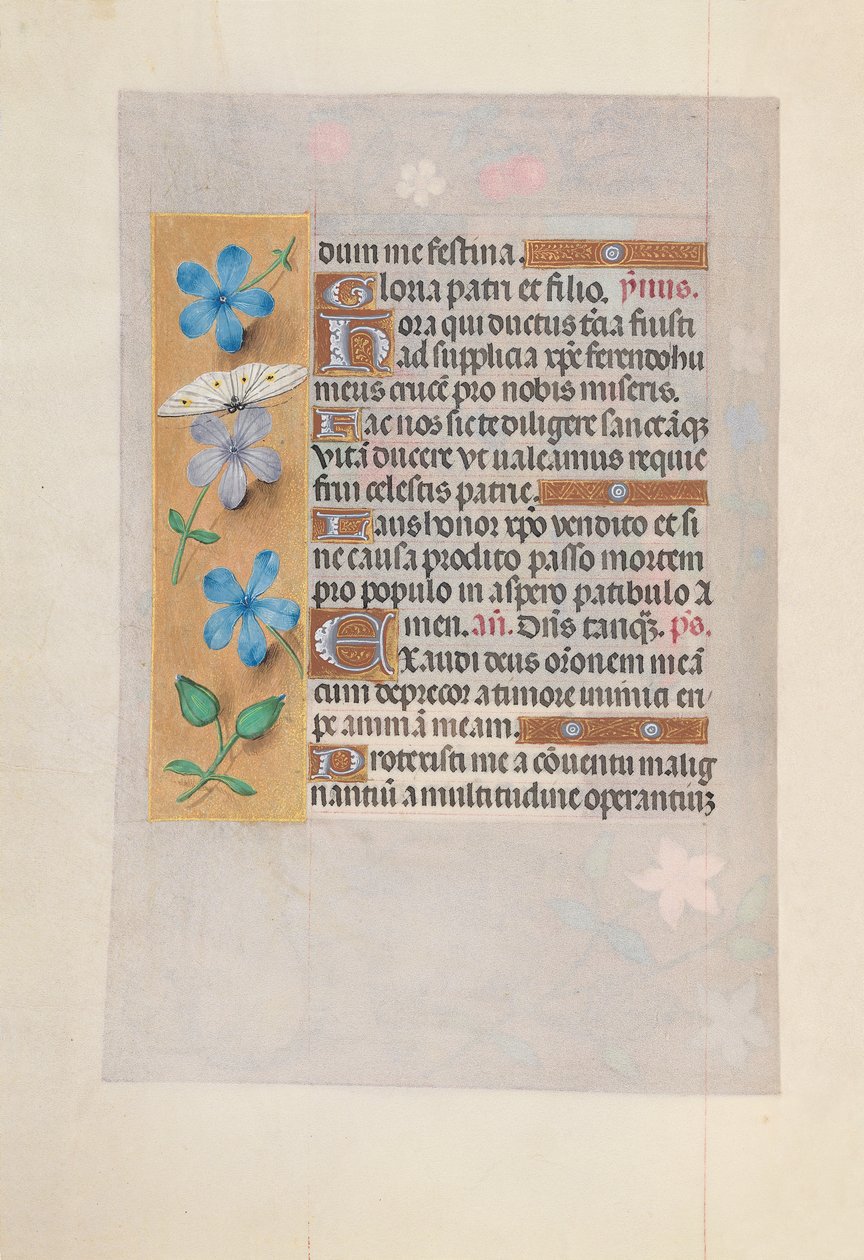 dum me festina.
Gloria patri et filio. ỹmus.
Hora qui ductus t̃cia fuisti
ad supplicia xp̃e ferendo hu
meus crucẽ pro nobis miseris.
Fac nos sic te diligere sanctãq̃
vitã ducere vt ualeamus requie
frui celestis patrie.
Laus honor xp̃o vendito et si
ne causa prodito passo mortem
pro populo in aspero patibulo A
men. añ. Dñs tanqȝ. pˢ.
Exaudi deus or̃onem meã
cum deprecor a timore inimici eri/
pe animã meam.
Protexisti me a cõuentu malig
nantiũ a multitudine operantiuȝ